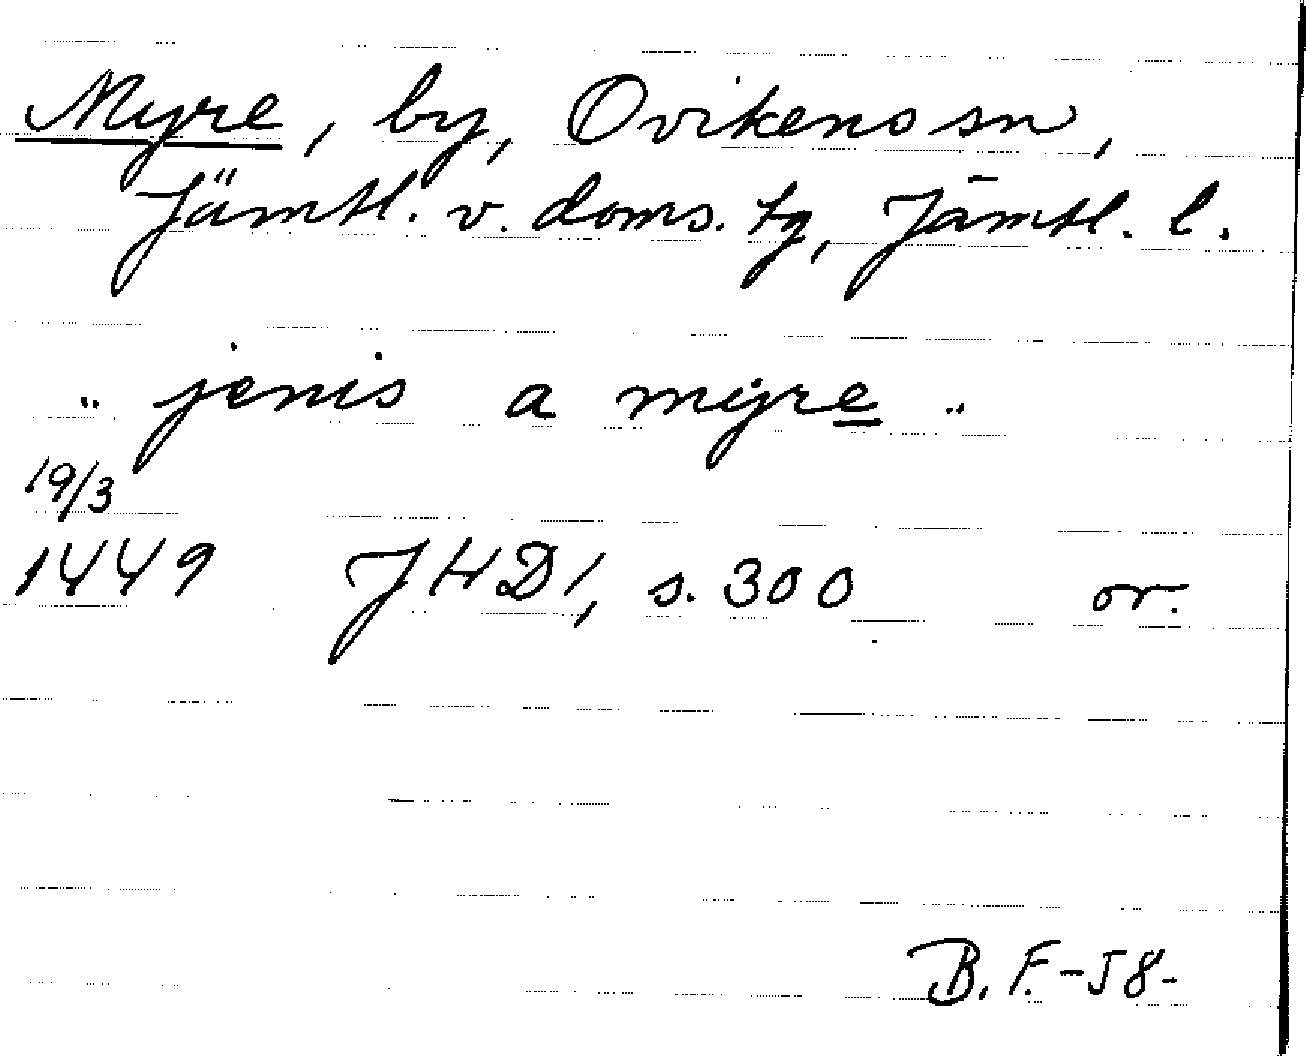 Myre, by, Ovikens sn,
Jämtl. v. doms. tg, Jämtl. l.
" jenis a myre "
19/3
1449 JHD1, s. 300 or.
B. F. -58-